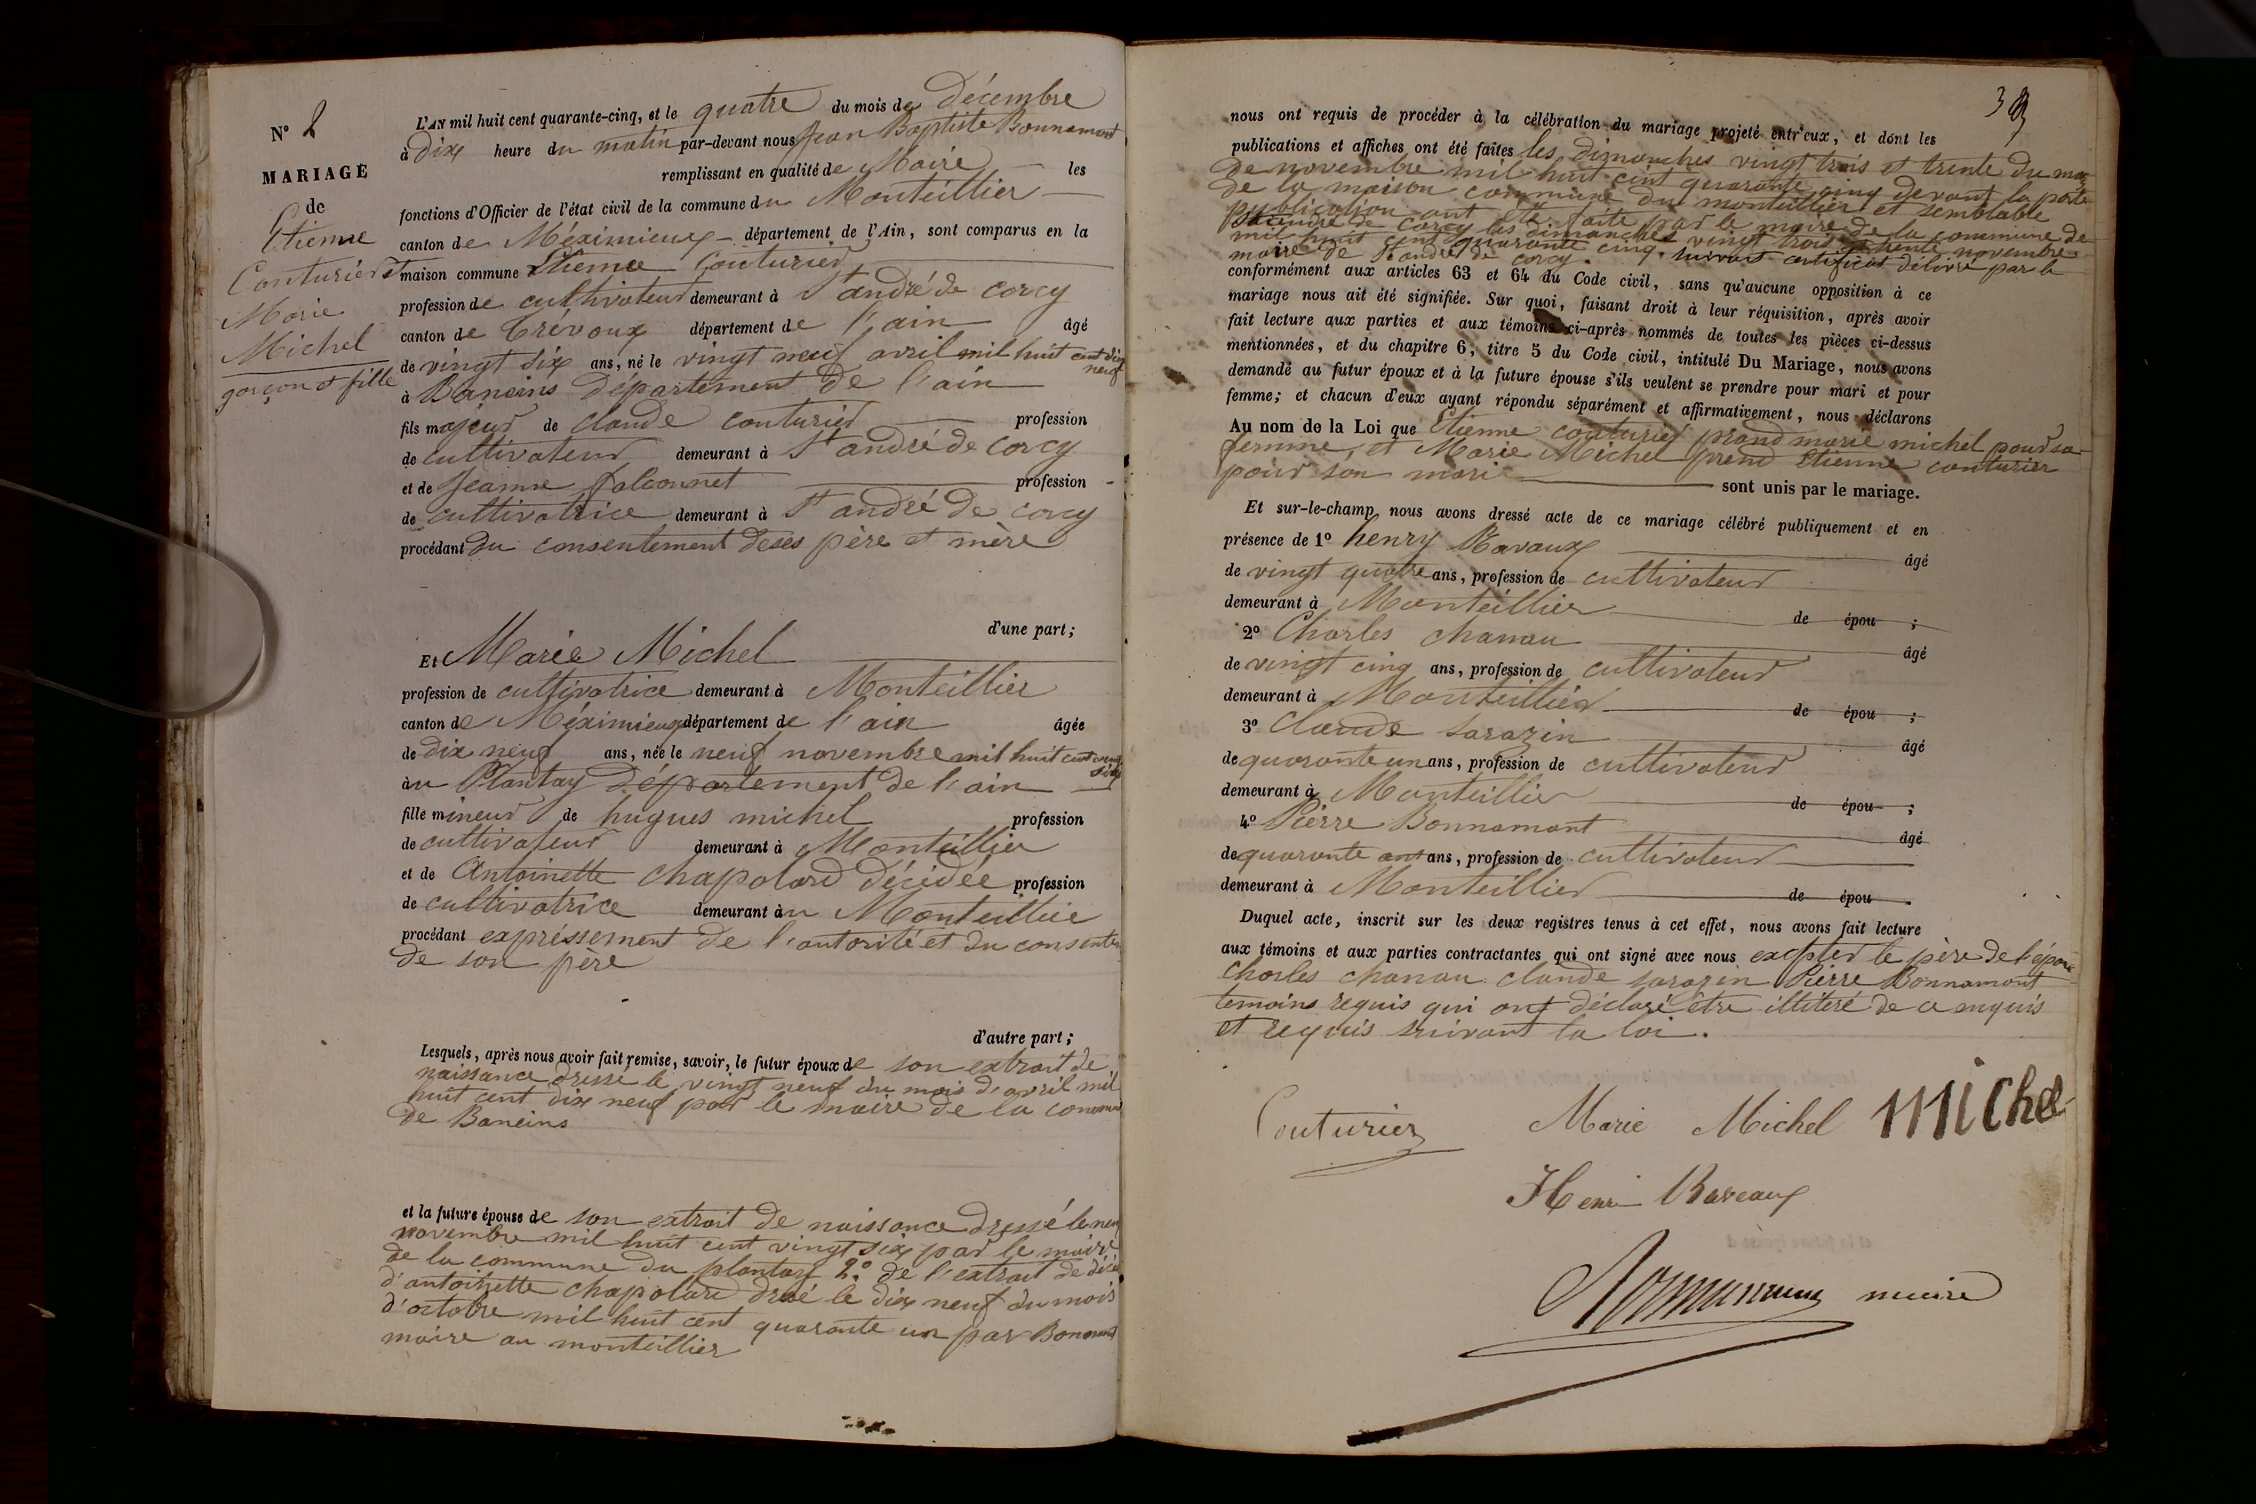 N° 2
MARIAGE
de
Etienne
Couturier et
Marie
Michel
garçon et fille
L'AN mil huit cent quarante-cinq, et le quatre du mois de Décembre
à Dix heure du matin par-devant nous Jean Baptiste Bonnamont
remplissant en qualité de Maire les
fonctions d'Officier de l'état civil de la commune du Monteillier
canton de Méximieux département de l'Ain, sont comparus en la
maison commune Etienne Couturier
profession de cultivateur demeurant à St andré de corcy
canton de Trévoux département de l'ain âgé
de vingt six ans, né le vingt neuf avril mil huit cent dix
neuf
à Baneins Département de l'ain
fils majeur de claude couturier profession
de cultivateur demeurant à St andré de corcy
et de Jeanne falconnet profession
de cultivatrice demeurant à St andré de corcy
procédant du consentement de ses père et mère
d'une part;
Et Marie Michel
profession de cultivatrice demeurant à Monteillier
canton de Méximieux département de l'ain âgée
de dix neuf ans, née le neuf novembre mil huit cent vingt
six
au Plantay Département de l'ain
fille mineur de hugues michel profession
de cultivateur demeurant à Monteillier
et de Antoinette chapolard décédée profession
de cultivatrice demeurant au Monteillier
procédant expréssement de l'autorité et du consente
de son père
d'autre part;
Lesquels, après nous avoir fait remise, savoir, le futur époux de son extrait de
naissance dressé le vingt neuf du mois d'avril mil
huit cent dix neuf par le maire de la commune
de Baneins
et la future épouse de son extrait de naissance dressé le neuf
novembre mil huit cent vingt six par le maire
de la commune du plantay 2° de l'extrait de décè
d'antoinette chapolard dressé le dix neuf du mois
d'octobre mil huit cent quarante un par Bonnamont
maire au monteillier
nous ont requis de procéder à la célébration du mariage projeté entr'eux, et dont les
publications et affiches ont été faites les dimanches vingt trois et trente du mois
de novembre mil huit cent quarante cinq devant la porte
de la maison commune du monteillier et semblable
publication ont été faite par le maire de la commune de
St andré de corcy les dimanches vingt trois et trente novembre
mil huit cent quarante cinq suivant certificat délivré par le
maire de St andré de corcy.
conformément aux articles 63 et 64 du Code civil, sans qu'aucune opposition à ce
mariage nous ait été signifiée. Sur quoi, faisant droit à leur réquisition, après avoir
fait lecture aux parties et aux témoins ci-après nommés de toutes les pièces ci-dessus
mentionnées, et du chapitre 6, titre 5 du Code civil, intitulé Du Mariage, nous avons
demandé au futur époux et à la future épouse s'ils veulent se prendre pour mari et pour
femme; et chacun d'eux ayant répondu séparément et affirmativement, nous déclarons
Au nom de la Loi que Etienne couturier prend marie michel pour sa
femme, et Marie Michel prend Etienne couturier
pour son mari sont unis par le mariage.
Et sur-le-champ nous avons dressé acte de ce mariage célébré publiquement et en
présence de 1° henry Ravaux âgé
de vingt quatre ans, profession de cultivateur
demeurant à Monteillier de épou ;
2° Charles chanau âgé
de vingt cinq ans, profession de cultivateur
demeurant à Monteillier de épou ;
3° Claude sarazin âgé
de quarante un ans, profession de cultivateur
demeurant à Monteillier de épou ;
4° Pierre Bonnamont âgé
de quarante ans ans, profession de cultivateur
demeurant à Monteillier de épou .
Duquel acte, inscrit sur les deux registres tenus à cet effet, nous avons fait lecture
aux témoins et aux parties contractantes qui ont signé avec nous excpter le père de l'épou
charles chanau claude sarazin Pierre Bonnamont
temoins requis qui ont déclaré etre illitéré de ce enquis
et requis suivant la loi.
Couturier Marie Michel Michel
Henri Raveaux
maire